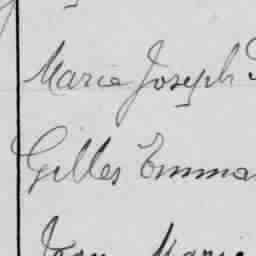 Marie Joseph
Gilles Emma
Jean Marie